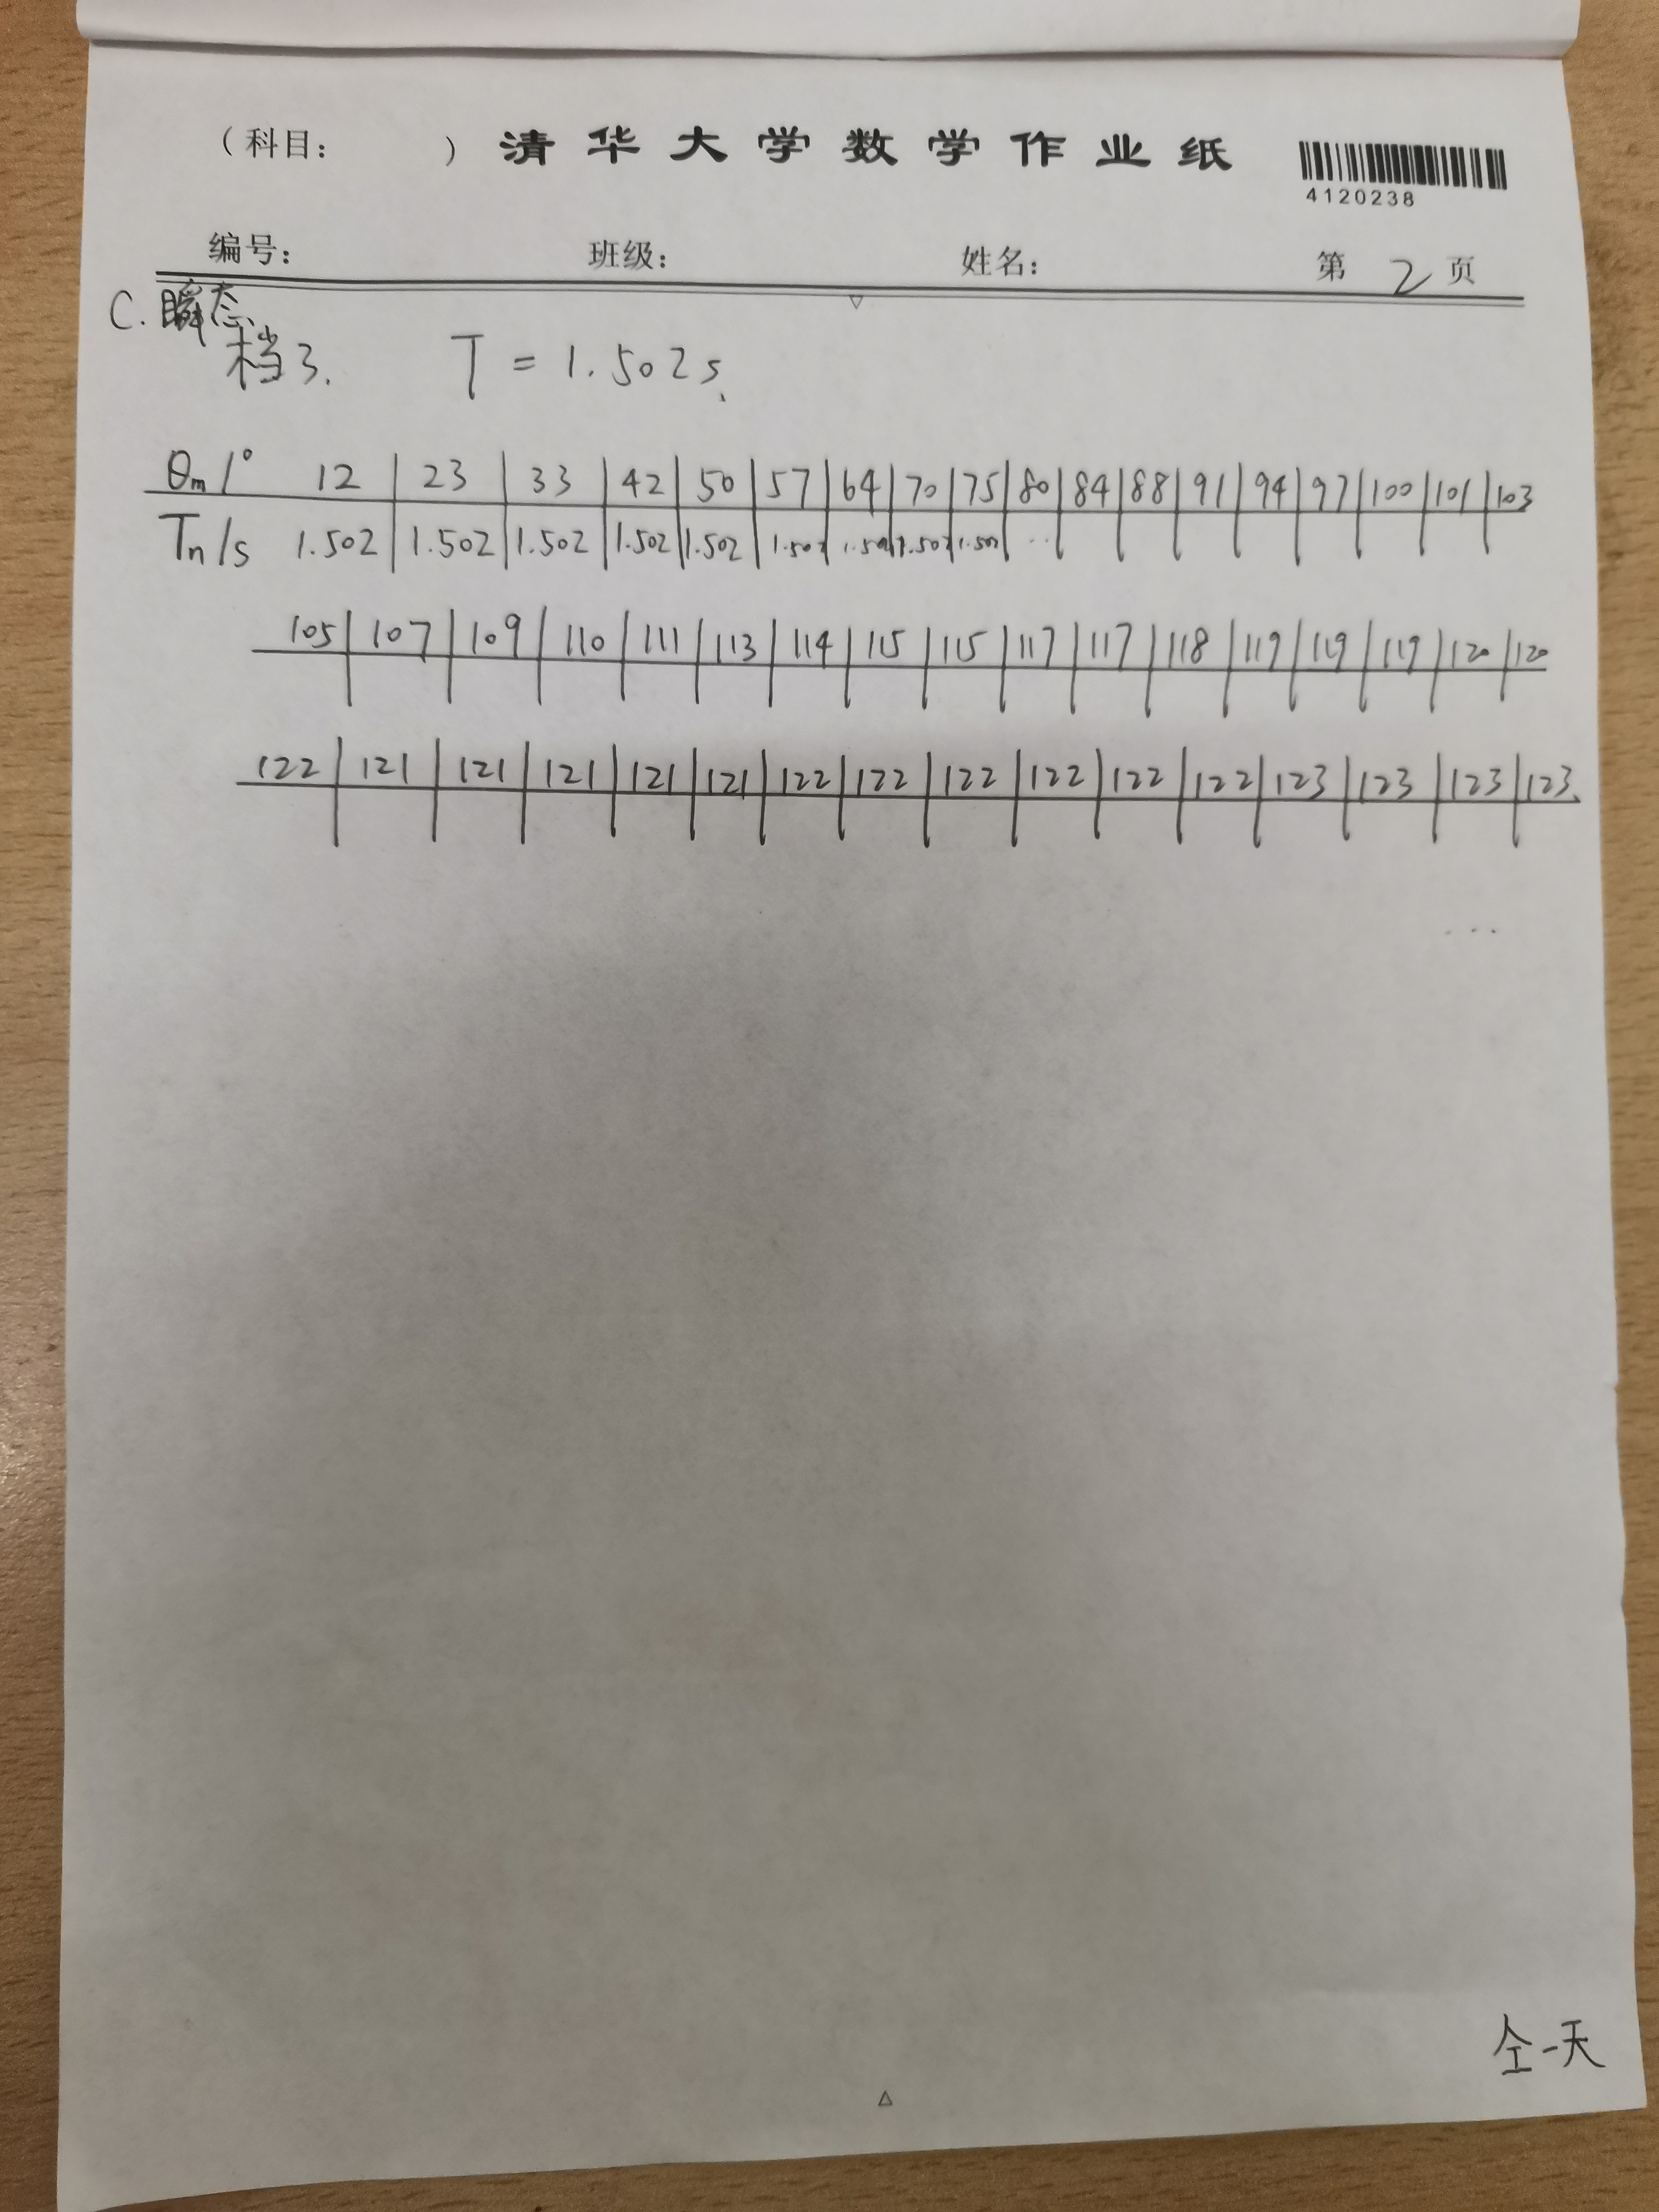 (科目: ) 清华大学数学作业纸
4120238
编号: 班级: 姓名: 第 2 页
C. 瞬态
档3. T = 1.502s
θm/° 12 23 33 42 50 57 64 70 75 80 84 88 91 94 97 100 101 103
Tn/s 1.502 1.502 1.502 1.502 1.502 1.502 1.502 1.502 1.502 ...
105 107 109 110 111 113 114 115 115 117 117 118 119 119 119 120 120
122 121 121 121 121 121 122 122 122 122 122 122 123 123 123 123
...
仝一天